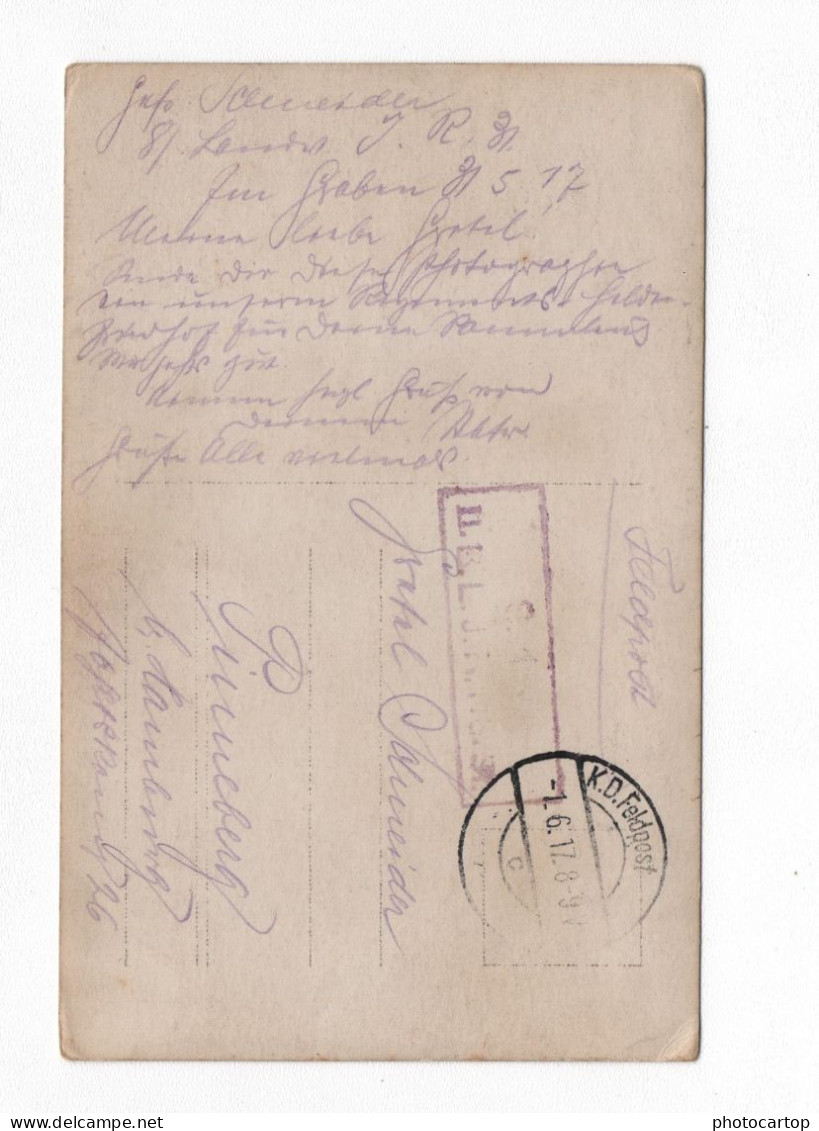 Gefr. Schneider
8/ Landw. J. R. 31
Im Graben 31 5 17
Meine liebe Gretel!
Sende dir diese Photographie
von unserm Regiments- Helden-
friedhof für deine Sammlung
Mir gehts gut.
Nimm herzl Gruß von
deinem Vater
Grüße Alle vielmals.
Feldpost
Gretel Schneider
Pinneberg
b. Hamburg
26
K.D. Feldpost
-1.6.17.8-9
c
photocartop